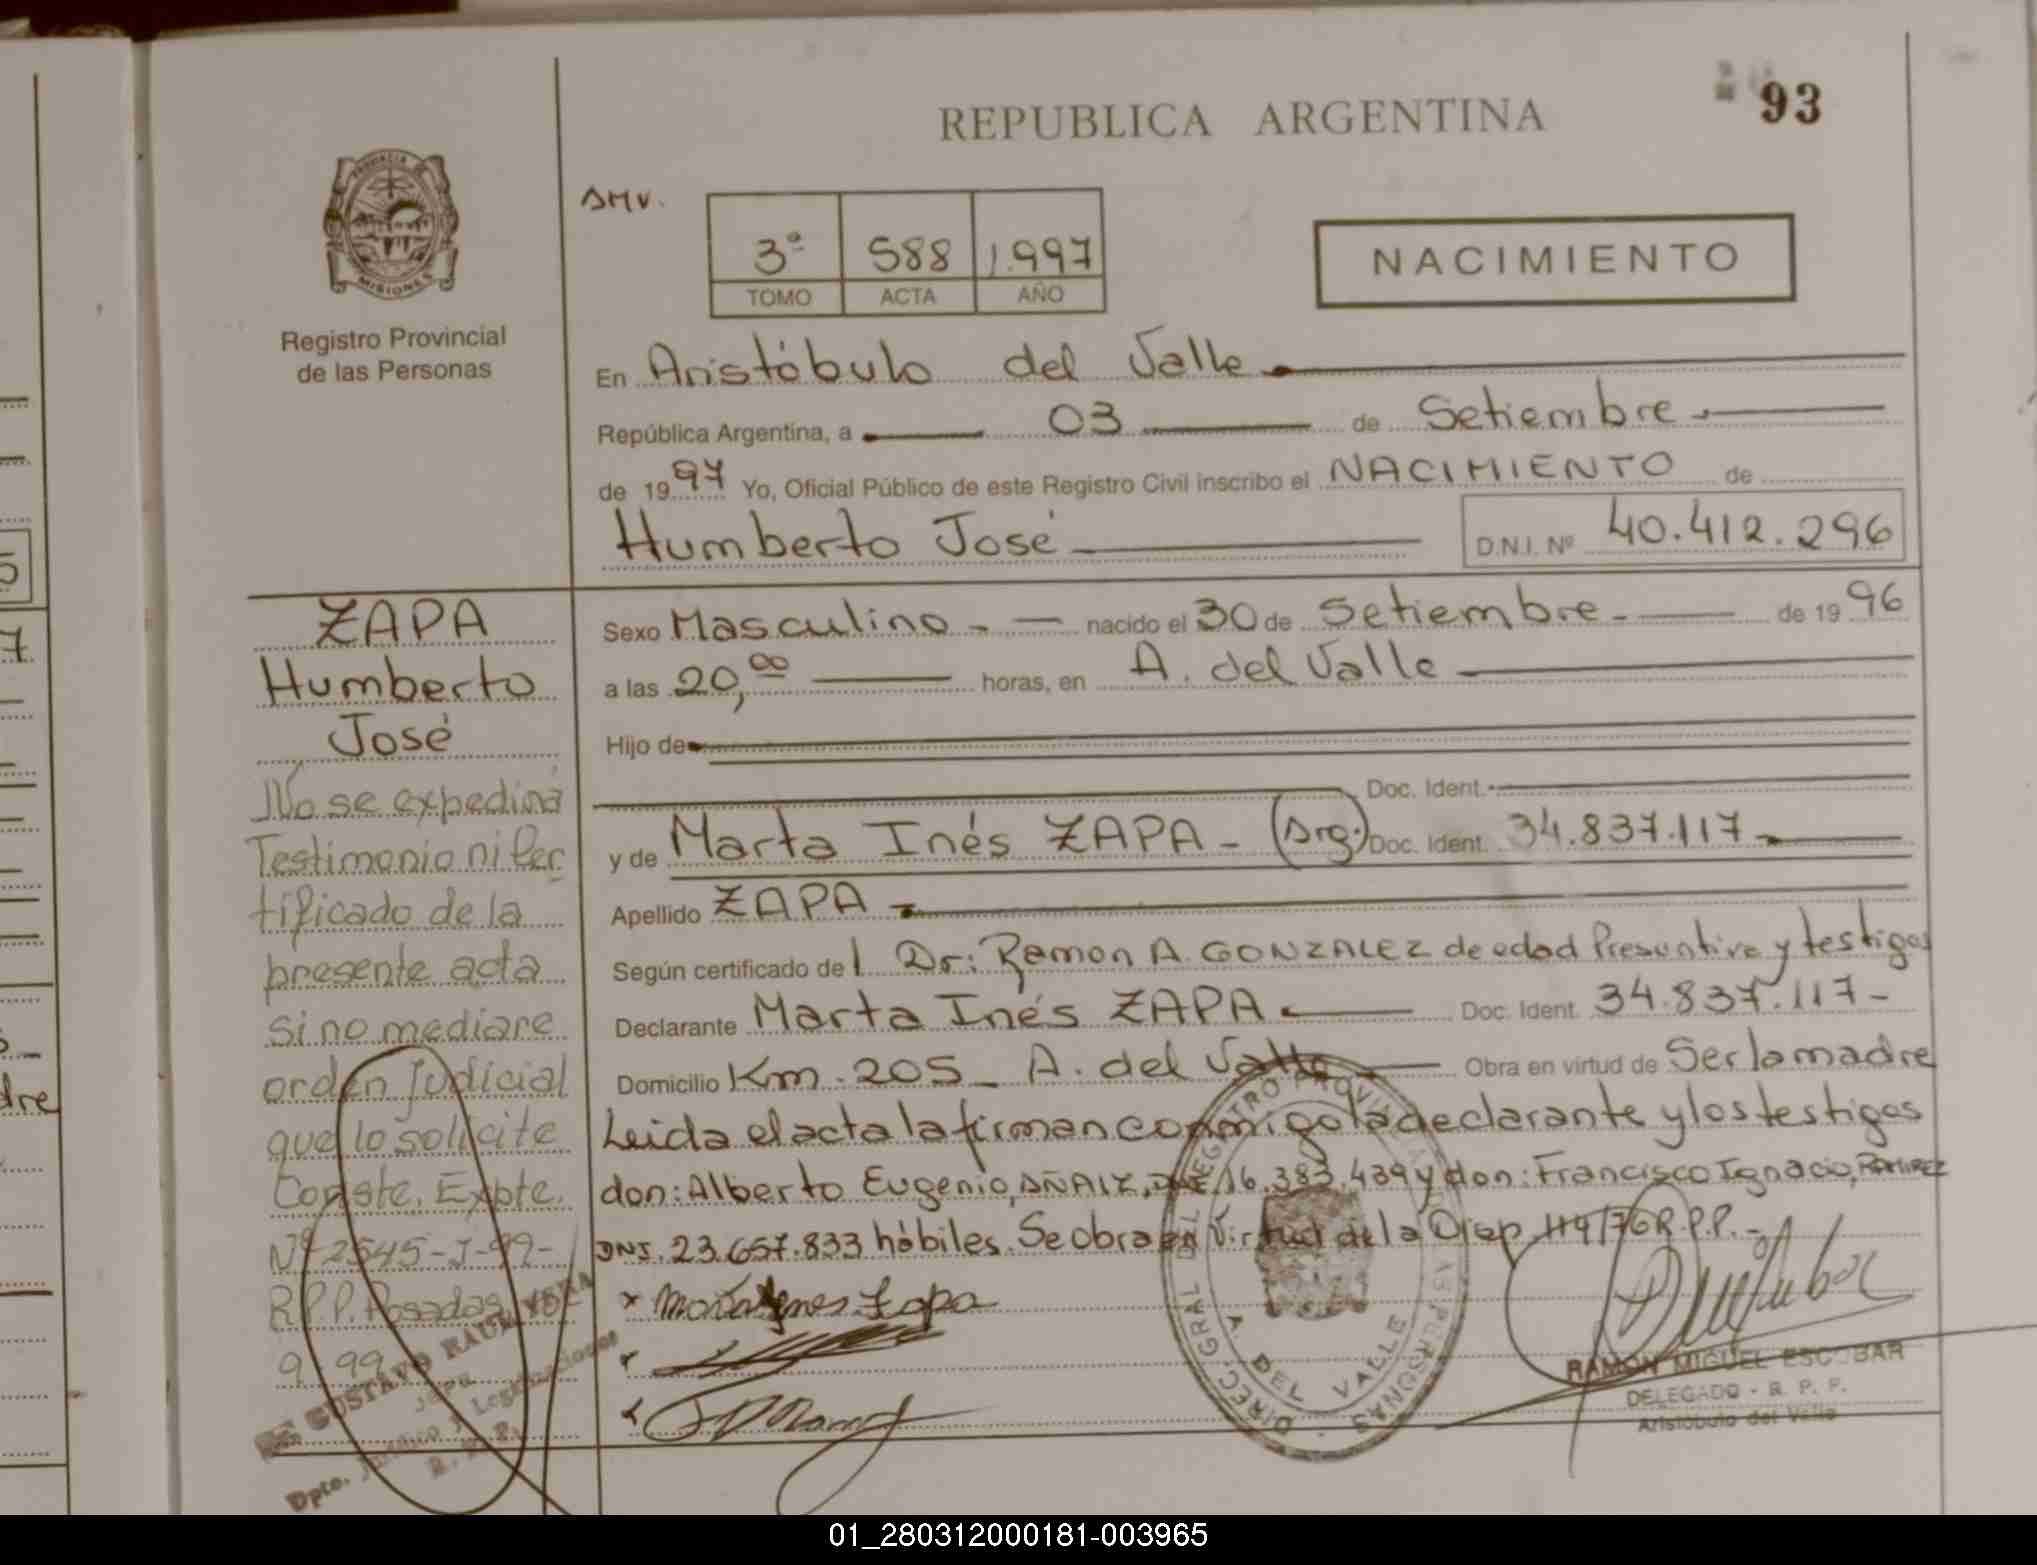 REPUBLICA ARGENTINA
93
PROVINCIA DE
MISIONES
Registro Provincial
de las Personas
3ª 588 1.997
TOMO ACTA AÑO
NACIMIENTO
En Aristóbulo del Valle
República Argentina, a 03 de Setiembre
de 1997 Yo, Oficial Público de este Registro Civil inscribo el NACIMIENTO de
Humberto José D.N.I. Nº 40.412.296
ZAPA
Humberto
José
No se expedirá
Testimonio ni Cer
tificado de la
presente acta
si no mediare
orden Judicial
que lo solicite
Conste. Expte.
Nº 2545-J-99-
R.P.P. Posadas
9. 99
GUSTAVO RAUL VERA
Dpto. Jurídico y Legalizaciones
R. P. P.
Sexo Masculino - nacido el 30 de Setiembre - de 1996
a las 20,00 horas, en A. del Valle
Hijo de
Doc. Ident.
y de Marta Inés ZAPA - (Arg.) Doc. Ident. 34.837.117
Apellido ZAPA
Según certificado del Dr: Ramon A. GONZALEZ de edad Presuntiva y testigos
Declarante Marta Inés ZAPA Doc. Ident. 34.837.117-
Domicilio Km. 205 - A. del Valle Obra en virtud de Ser la madre
Leida el acta la firman conmigo la declarante y los testigos
don: Alberto Eugenio, 16.383.439 y don: Francisco Ignacio, RAMIREZ
DNI. 23.657.833 hábiles. Se obra en Virtud de la Disp. 114/76 R.P.P.-
x Marta Ines Zapa
DIREC. GRAL DEL REGISTRO PROVINCIAL PERSONAS
A. DEL VALLE
RAMON MIGUEL ESCOBAR
DELEGADO - R. P. P.
Aristóbulo del Valle
01_280312000181-003965